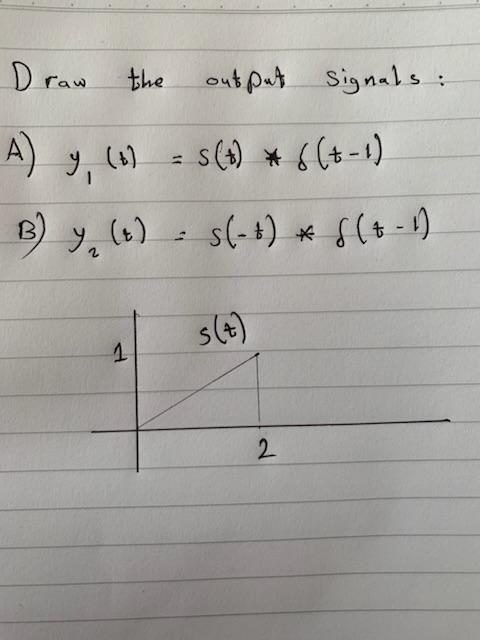 Draw the output signals :
A) y₁(t) = s(t) * δ(t-1)
B) y₂(t) = s(-t) * δ(t-1)
s(t)
1
2